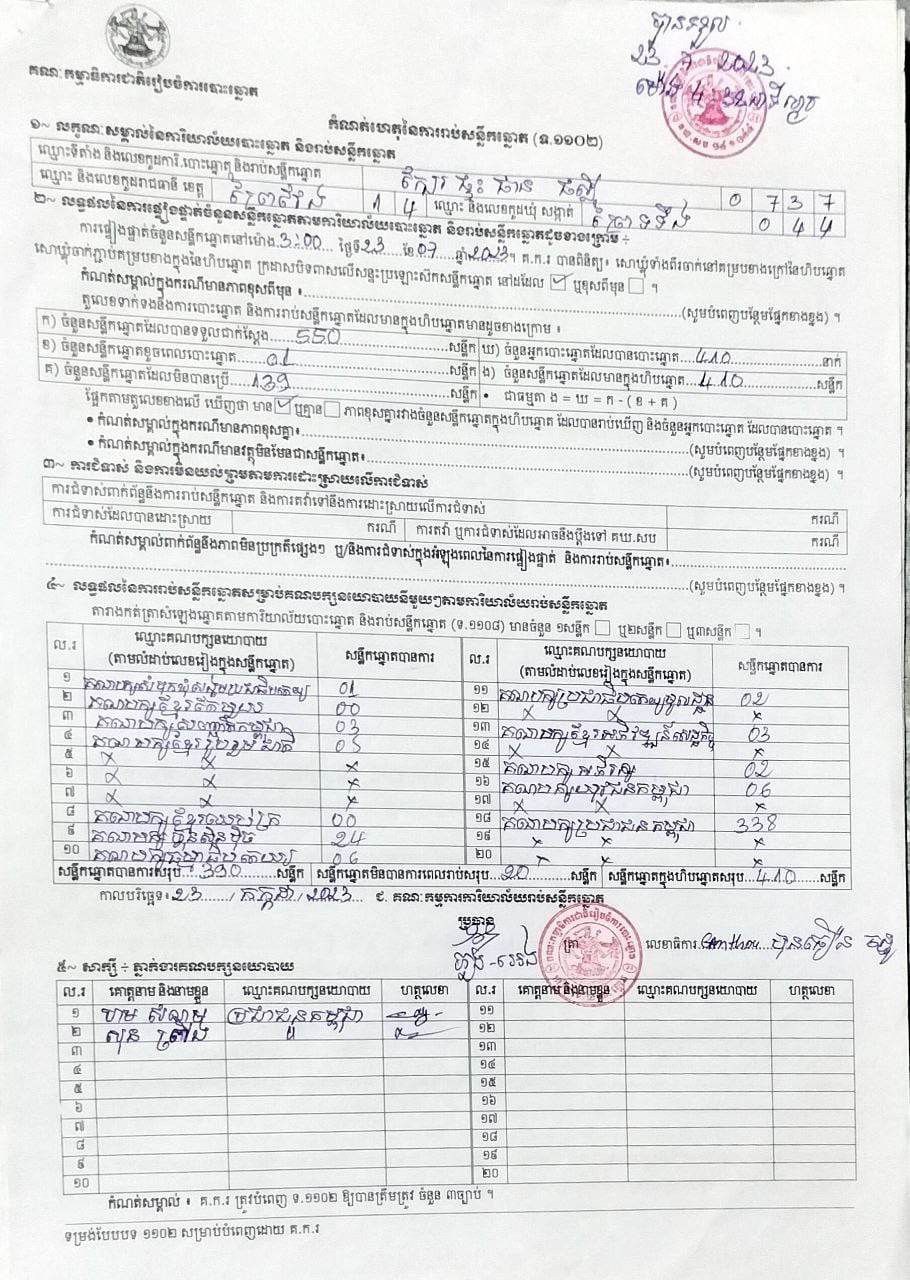 បានទទួល
23. 7. 2023
ម៉ោង 4
គណៈកម្មាធិការជាតិរៀបចំការបោះឆ្នោត
កំណត់ហេតុនៃការរាប់សន្លឹកឆ្នោត (ទ.១១០២)
១~ លក្ខណៈសម្គាល់នៃការិយាល័យបោះឆ្នោត និងរាប់សន្លឹកឆ្នោត
ឈ្មោះទីតាំង និងលេខកូដការិ.បោះឆ្នោត និងរាប់សន្លឹកឆ្នោត 0 7 3 7
ឈ្មោះ និងលេខកូដរាជធានី ខេត្ត ព្រៃវែង 1 4 ឈ្មោះ និងលេខកូដឃុំ សង្កាត់ 0 4 4
២~ លទ្ធផលនៃការផ្ទៀងផ្ទាត់ចំនួនសន្លឹកឆ្នោតតាមការិយាល័យបោះឆ្នោត និងរាប់សន្លឹកឆ្នោតដូចខាងក្រោម ÷
ការផ្ទៀងផ្ទាត់ចំនួនសន្លឹកឆ្នោតនៅម៉ោង 3:00 ថ្ងៃទី 23 ខែ 07 ឆ្នាំ 2023។ គ.ក.រ បានពិនិត្យ៖ សោឃ្លុំទាំងពីរចាក់នៅគម្របខាងក្រៅនៃហិបឆ្នោត
សោឃ្លុំចាក់ភ្ជាប់គម្របខាងក្នុងនៃហិបឆ្នោត ក្រដាសបិទពាសលើសន្ទះប្រឡោះស៊ីកសន្លឹកឆ្នោត នៅដដែល ☑ ឬខុសពីមុន ☐ ។
កំណត់សម្គាល់ក្នុងករណីមានភាពខុសពីមុន ៖ (សូមបំពេញបន្ថែមផ្នែកខាងខ្នង) ។
តួលេខទាក់ទងនឹងការបោះឆ្នោត និងការរាប់សន្លឹកឆ្នោតដែលមានក្នុងហិបឆ្នោតមានដូចខាងក្រោម ៖
ក) ចំនួនសន្លឹកឆ្នោតដែលបានទទួលជាក់ស្តែង 550 សន្លឹក
ខ) ចំនួនសន្លឹកឆ្នោតខូចពេលបោះឆ្នោត 01 សន្លឹក ឃ) ចំនួនអ្នកបោះឆ្នោតដែលបានបោះឆ្នោត 410 នាក់
គ) ចំនួនសន្លឹកឆ្នោតដែលមិនបានប្រើ 139 សន្លឹក ង) ចំនួនសន្លឹកឆ្នោតដែលមានក្នុងហិបឆ្នោត 410 សន្លឹក
• ជាធម្មតា ង = ឃ = ក - ( ខ + គ )
ផ្អែកតាមតួលេខខាងលើ ឃើញថា មាន ☑ ឬគ្មាន ☐ ភាពខុសគ្នារវាងចំនួនសន្លឹកឆ្នោតក្នុងហិបឆ្នោត ដែលបានរាប់ឃើញ និងចំនួនអ្នកបោះឆ្នោត ដែលបានបោះឆ្នោត ។
• កំណត់សម្គាល់ក្នុងករណីមានភាពខុសគ្នា៖ (សូមបំពេញបន្ថែមផ្នែកខាងខ្នង) ។
• កំណត់សម្គាល់ក្នុងករណីមានវត្ថុមិនមែនជាសន្លឹកឆ្នោត៖ (សូមបំពេញបន្ថែមផ្នែកខាងខ្នង) ។
៣~ ការជំទាស់ និងការមិនយល់ព្រមតាមការដោះស្រាយលើការជំទាស់
ការជំទាស់ពាក់ព័ន្ធនឹងការរាប់សន្លឹកឆ្នោត និងការតវ៉ាទៅនឹងការដោះស្រាយលើការជំទាស់ ករណី
ការជំទាស់ដែលបានដោះស្រាយ ករណី ការតវ៉ា ឬការជំទាស់ដែលអាចនឹងប្តឹងទៅ គឃ.សប ករណី
កំណត់សម្គាល់ពាក់ព័ន្ធនឹងភាពមិនប្រក្រតីផ្សេងៗ ឬ/និងការជំទាស់ក្នុងអំឡុងពេលនៃការផ្ទៀងផ្ទាត់ និងការរាប់សន្លឹកឆ្នោត៖
(សូមបំពេញបន្ថែមផ្នែកខាងខ្នង) ។
៤~ លទ្ធផលនៃការរាប់សន្លឹកឆ្នោតសម្រាប់គណបក្សនយោបាយនីមួយៗតាមការិយាល័យរាប់សន្លឹកឆ្នោត
តារាងកត់ត្រាសំឡេងឆ្នោតតាមការិយាល័យបោះឆ្នោត និងរាប់សន្លឹកឆ្នោត (ទ.១១០៨) មានចំនួន ១សន្លឹក ☐ ឬ២សន្លឹក ☐ ឬ៣សន្លឹក ☐ ។
ល.រ ឈ្មោះគណបក្សនយោបាយ (តាមលំដាប់លេខរៀងក្នុងសន្លឹកឆ្នោត) សន្លឹកឆ្នោតបានការ ល.រ ឈ្មោះគណបក្សនយោបាយ (តាមលំដាប់លេខរៀងក្នុងសន្លឹកឆ្នោត) សន្លឹកឆ្នោតបានការ
១ គណបក្សសំបុកឃ្មុំសង្គមប្រជាធិបតេយ្យ 01 ១១ គណបក្សប្រជាធិបតេយ្យមូលដ្ឋាន 02
២ គណបក្សខ្មែរឥស្សរៈ 00 ១២ x x x
៣ គណបក្សសញ្ជាតិកម្ពុជា 03 ១៣ គណបក្សខ្មែរអភិវឌ្ឍន៍សេដ្ឋកិច្ច 03
៤ គណបក្សខ្មែររួបរួមជាតិ 05 ១៤ x
៥ x x x ១៥ គណបក្ស 02
៦ x x x ១៦ គណបក្សយុវជនកម្ពុជា 06
៧ x x x ១៧ x x x
៨ គណបក្សខ្មែរឈប់ក្រ 00 ១៨ គណបក្សប្រជាជនកម្ពុជា 338
៩ គណបក្សហ្វ៊ុនស៊ិនប៉ិច 24 ១៩ x x x
១០ គណបក្សធម្មាធិបតេយ្យ 06 20 x x x
សន្លឹកឆ្នោតបានការសរុប 390 សន្លឹក សន្លឹកឆ្នោតមិនបានការពេលរាប់សរុប 20 សន្លឹក សន្លឹកឆ្នោតក្នុងហិបឆ្នោតសរុប 410 សន្លឹក
កាលបរិច្ឆេទ៖ 23 / កក្កដា / 2023 ជ. គណៈកម្មការការិយាល័យរាប់សន្លឹកឆ្នោត
ប្រធាន ត្រា លេខាធិការ
៥~ សាក្សី ÷ ភ្នាក់ងារគណបក្សនយោបាយ
ល.រ គោត្តនាម និងនាមខ្លួន ឈ្មោះគណបក្សនយោបាយ ហត្ថលេខា ល.រ គោត្តនាម និងនាមខ្លួន ឈ្មោះគណបក្សនយោបាយ ហត្ថលេខា
១ ប្រជាជនកម្ពុជា ១១
២ សុន ៗ ១២
៣ ១៣
៤ ១៤
៥ ១៥
៦ ១៦
៧ ១៧
៨ ១៨
៩ ១៩
១០ 20
កំណត់សម្គាល់ ៖ គ.ក.រ ត្រូវបំពេញ ទ.១១០២ ឱ្យបានត្រឹមត្រូវ ចំនួន ៣ច្បាប់ ។
ទម្រង់បែបបទ ១១០២ សម្រាប់បំពេញដោយ គ.ក.រ